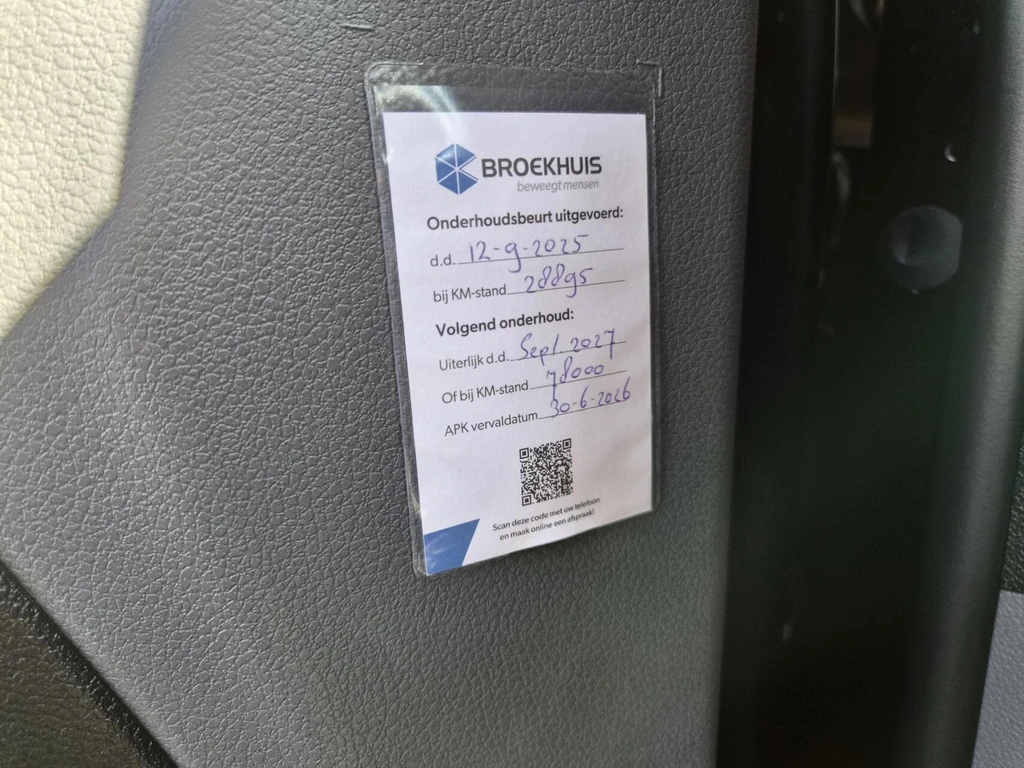 BROEKHUIS
beweegt mensen
Onderhoudsbeurt uitgevoerd:
d.d. 12-9-2025
bij KM-stand 28895
Volgend onderhoud:
Uiterlijk d.d. Sept 2027
Of bij KM-stand 78000
APK vervaldatum 30-6-2026
Scan deze code met uw telefoon
en maak online een afspraak!